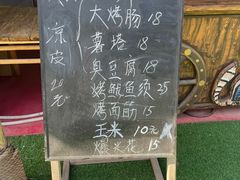 大烤肠 18
薯塔 18
臭豆腐 18
烤鱿鱼须 25
烤面筋 15
玉米 10元
爆米花 15
凉皮 20元